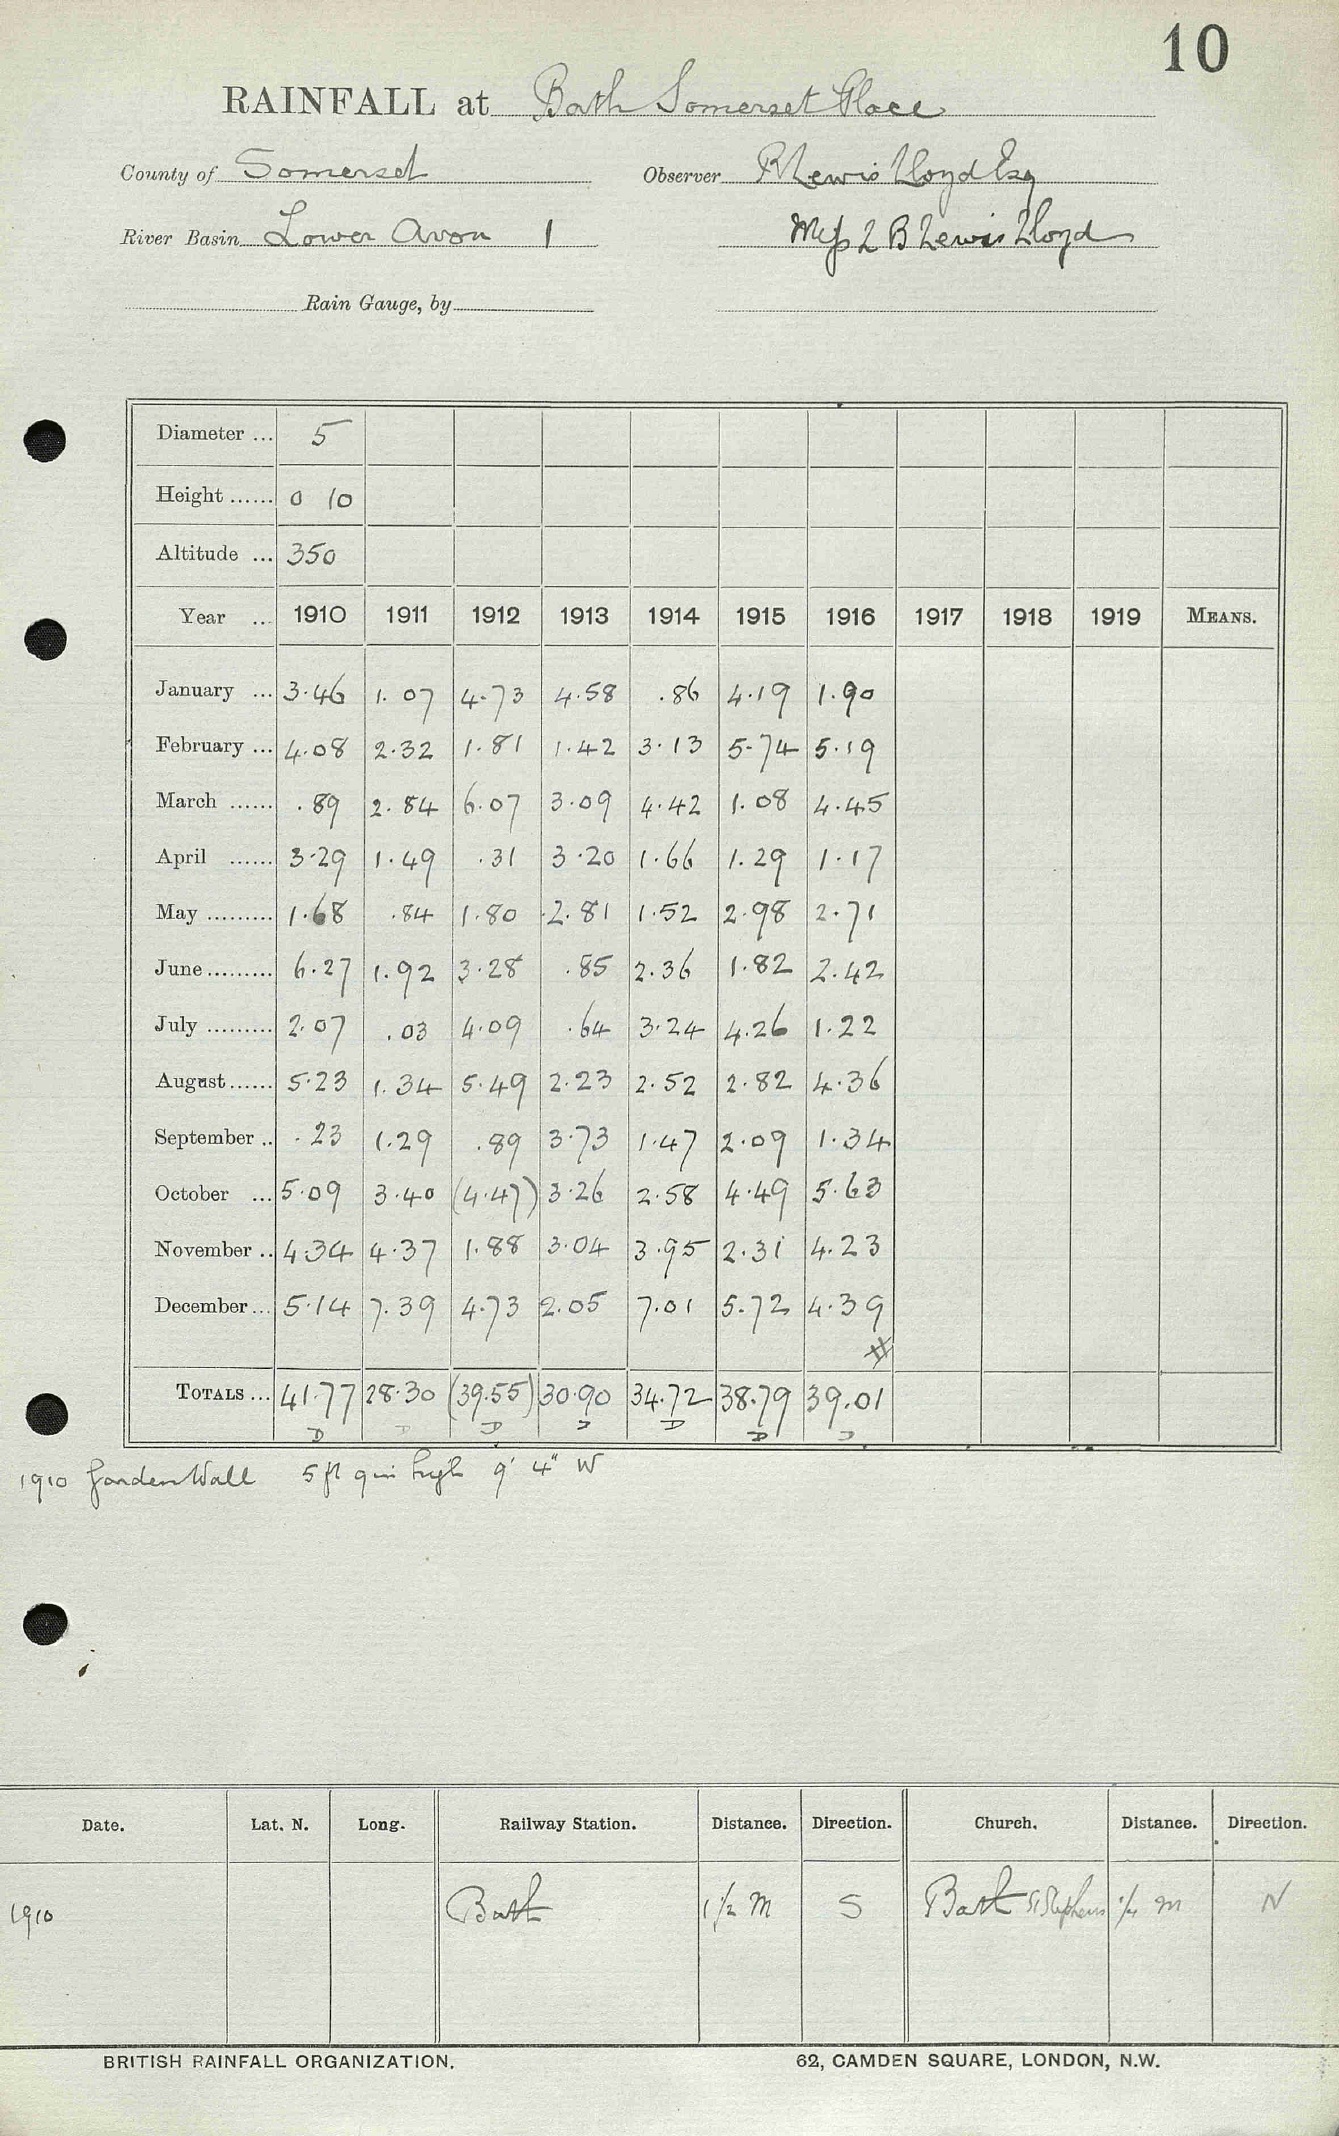 10
RAINFALL at Bath Somerset Place
County of Somerset Observer R Lewis Lloyd Esq
River Basin Lower Avon 1 Miss L B Lewis Lloyd
Rain Gauge, by
Diameter ... 5
Height ...... 0 10
Altitude ... 350
Year ... 1910 1911 1912 1913 1914 1915 1916 1917 1918 1919 MEANS.
January ... 3.46 1.07 4.73 4.58 .86 4.19 1.90
February ... 4.08 2.32 1.81 1.42 3.13 5.74 5.19
March ...... .89 2.84 6.07 3.09 4.42 1.08 4.45
April ...... 3.29 1.49 .31 3.20 1.66 1.29 1.17
May ......... 1.68 .84 1.80 2.81 1.52 2.98 2.71
June ......... 6.27 1.92 3.28 .85 2.36 1.82 2.42
July ......... 2.07 .03 4.09 .64 3.24 4.26 1.22
August ...... 5.23 1.34 5.49 2.23 2.52 2.82 4.36
September .. .23 1.29 .89 3.73 1.47 2.09 1.34
October ... 5.09 3.40 (4.47) 3.26 2.58 4.49 5.63
November .. 4.34 4.37 1.88 3.04 3.95 2.31 4.23
December ... 5.14 7.39 4.73 2.05 7.01 5.72 4.39
#
TOTALS ... 41.77 28.30 (39.55) 30.90 34.72 38.79 39.01
D D D D D D D
1910 Garden Wall 5 ft 9 in high 9' 4" W
Date. Lat. N. Long. Railway Station. Distance. Direction. Church. Distance. Direction.
1910 Bath 1 1/2 M S Bath St Stephens 1/4 m N
BRITISH RAINFALL ORGANIZATION. 62, CAMDEN SQUARE, LONDON, N.W.